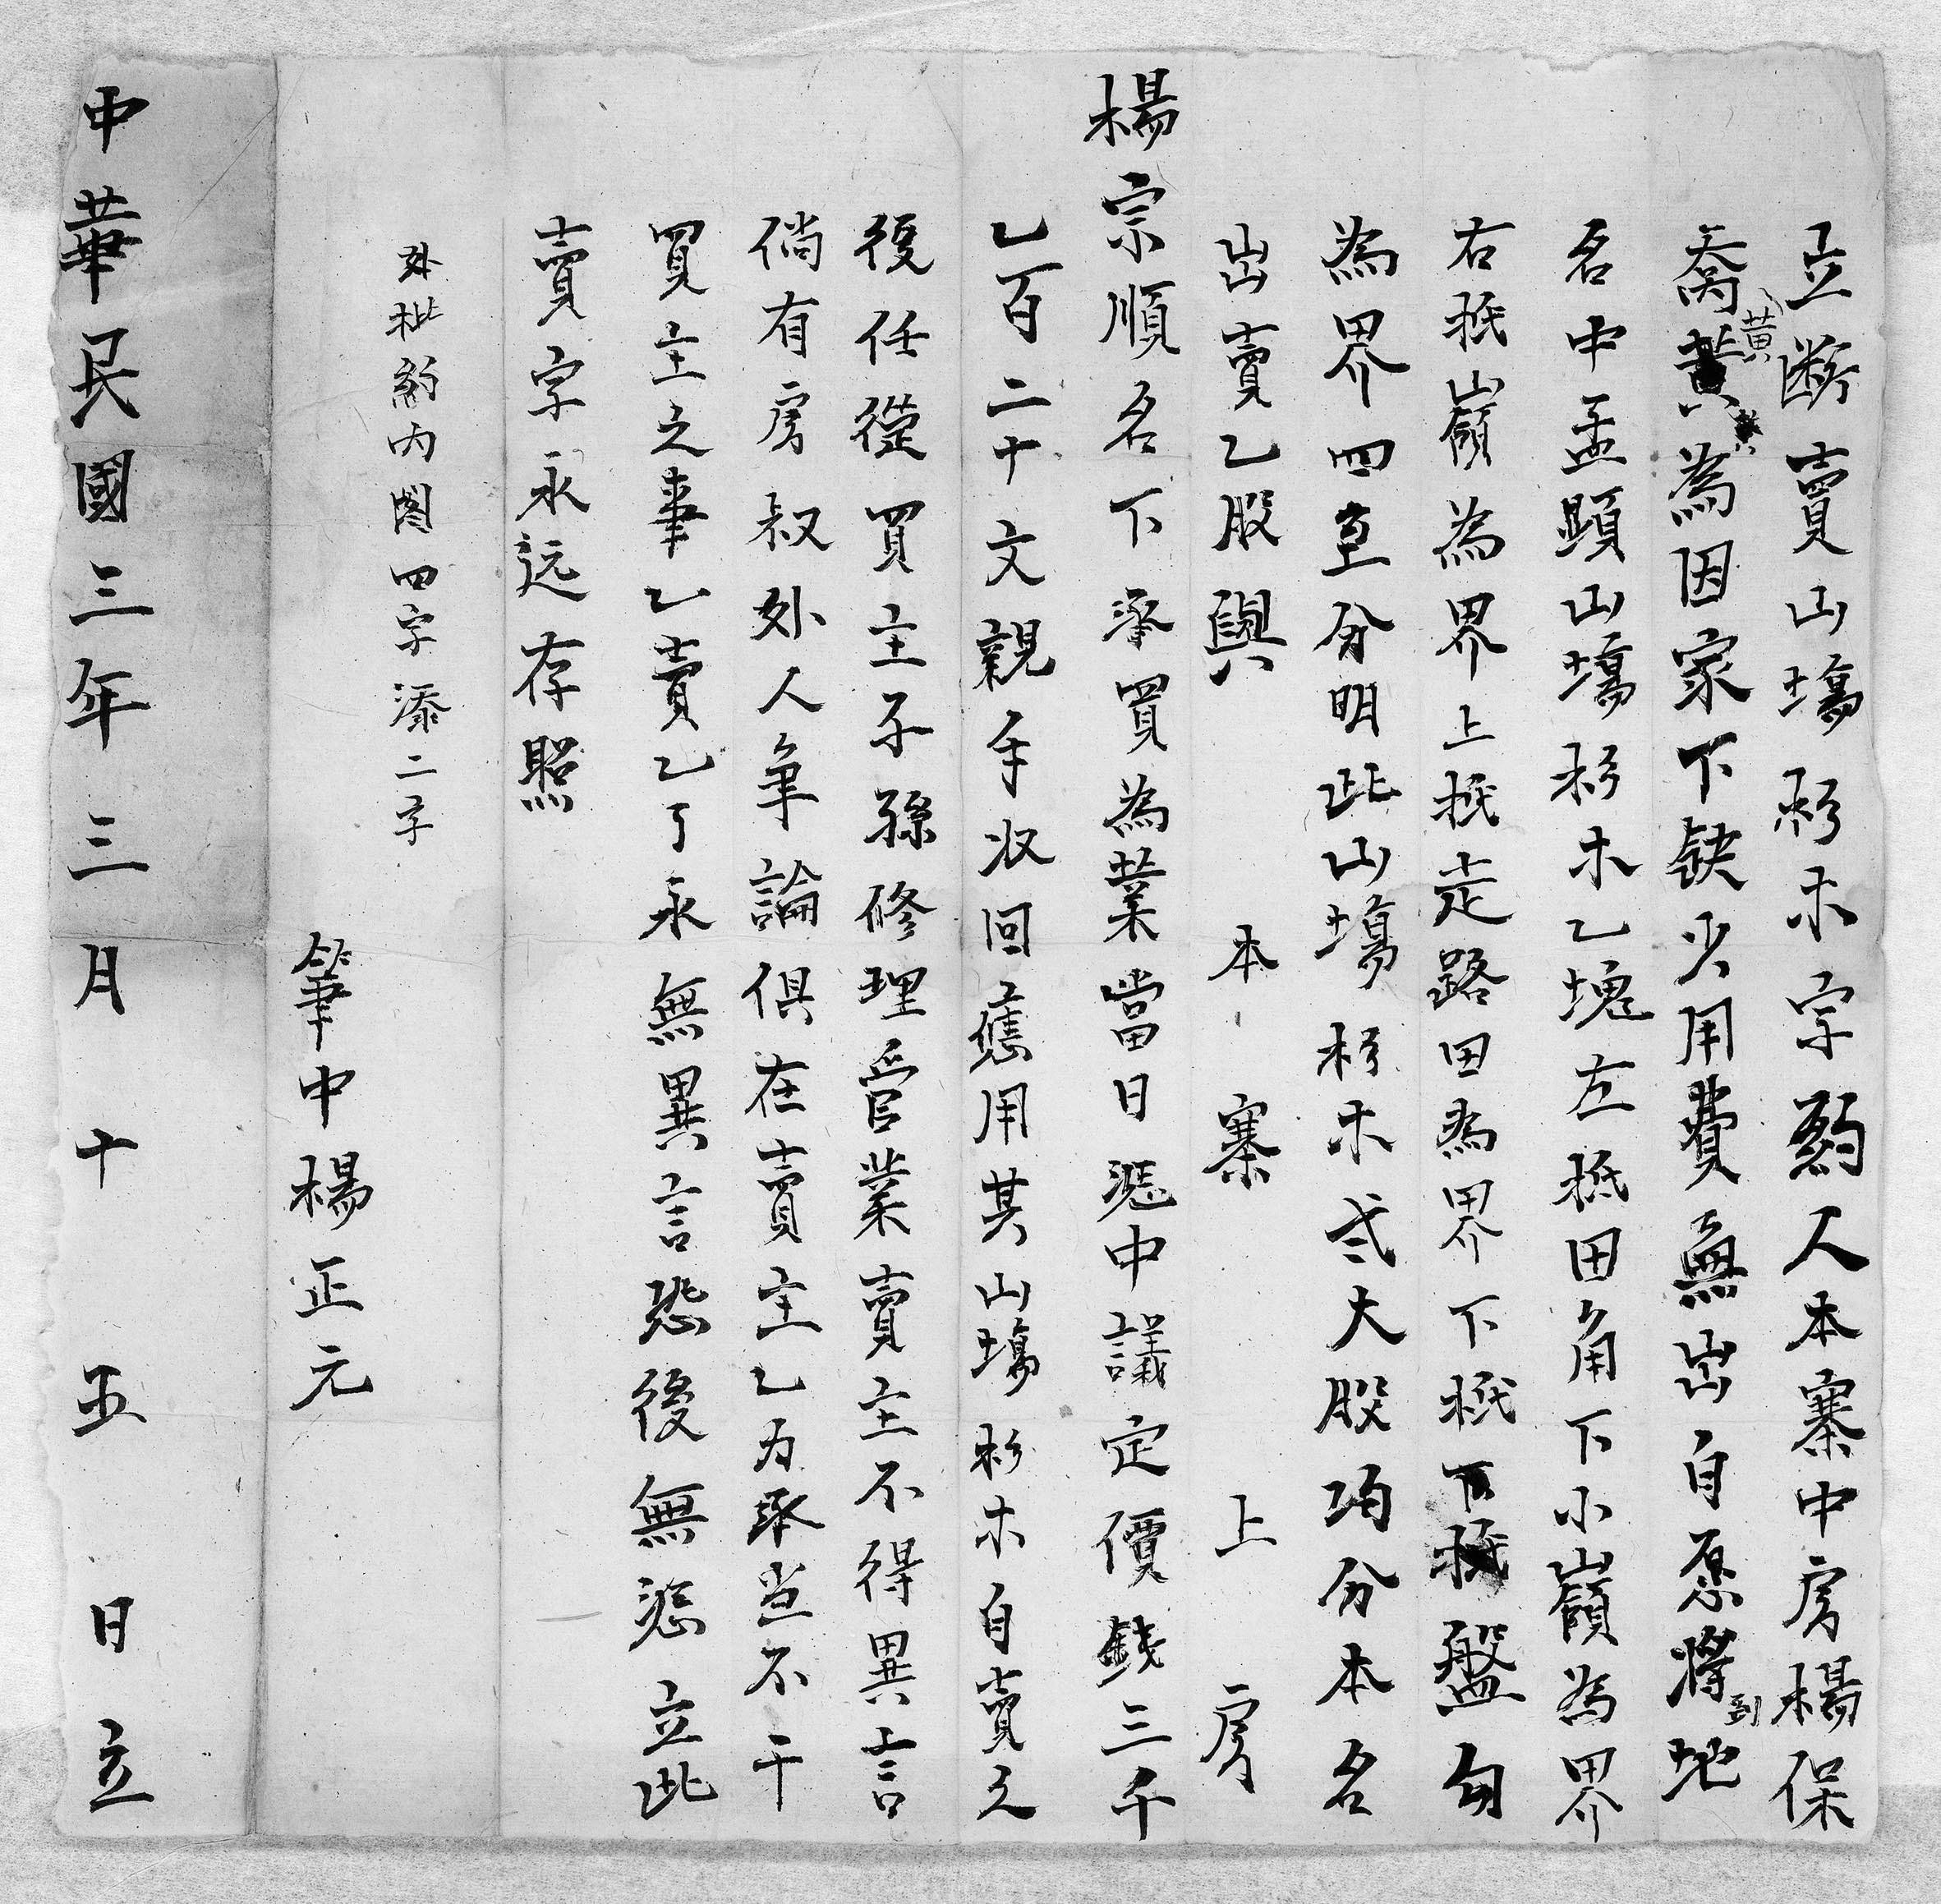 立断賣山塲杉木字約人本寨中房楊保
喬黃為因家下缺少用費無出自愿將到地
名中孟顕山塲杉木乙塊左抵田角下小嶺為界
右抵嶺為界上抵走路田為界下抵盤勾
為界四至分明此山塲杉木弍大股均分本名
出賣乙股與 本寨上房
楊宗順名下承買為業當日憑中議定價錢三千
乙百二十文親手收回應用其山塲杉木自賣之
後任從買主子孫修理管業賣主不得異言
倘有房叔外人争論俱在賣主乙为承当不干
買主之事乙賣乙了永無異言恐後無憑立此
賣字永远存照
外批約内圖四字添二字
筆中楊正元
中華民國三年三月十五日立